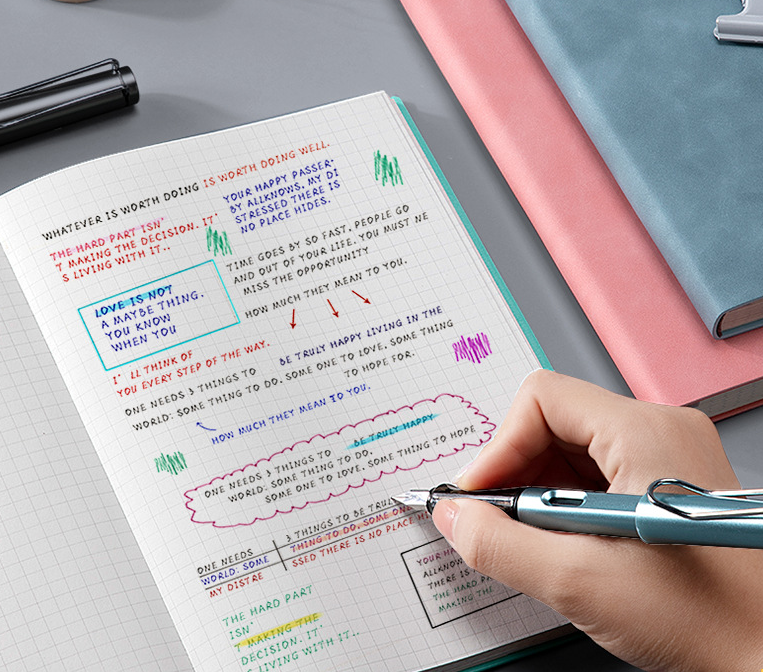 WHATEVER IS WORTH DOING IS WORTH DOING WELL.
THE HARD PART ISN'
T MAKING THE DECISION. IT'
S LIVING WITH IT..
YOUR HAPPY PASSER;
BY ALLKNOWS, MY DI
STRESSED THERE IS
NO PLACE HIDES.
TIME GOES BY SO FAST, PEOPLE GO
AND OUT OF YOUR LIFE. YOU MUST NE
MISS THE OPPORTUNITY
HOW MUCH THEY MEAN TO YOU.
LOVE IS NOT
A MAYBE THING.
YOU KNOW
WHEN YOU
I' LL THINK OF
YOU EVERY STEP OF THE WAY.
BE TRULY HAPPY LIVING IN THE
ONE NEEDS 3 THINGS TO
WORLD: SOME THING TO DO, SOME ONE TO LOVE, SOME THING
TO HOPE FOR.
HOW MUCH THEY MEAN TO YOU.
ONE NEEDS 3 THINGS TO BE TRULY HAPPY
WORLD: SOME THING TO DO,
SOME ONE TO LOVE, SOME THING TO HOPE
ONE NEEDS 3 THINGS TO BE TRULY
WORLD: SOME THING TO DO, SOME ONE
MY DISTRE SSED THERE IS NO PLACE HI
YOUR H
ALLKNOW
THERE IS
THE HARD P
MAKING THE
THE HARD PART
ISN'
T MAKING THE
DECISION. IT'
S LIVING WITH IT..